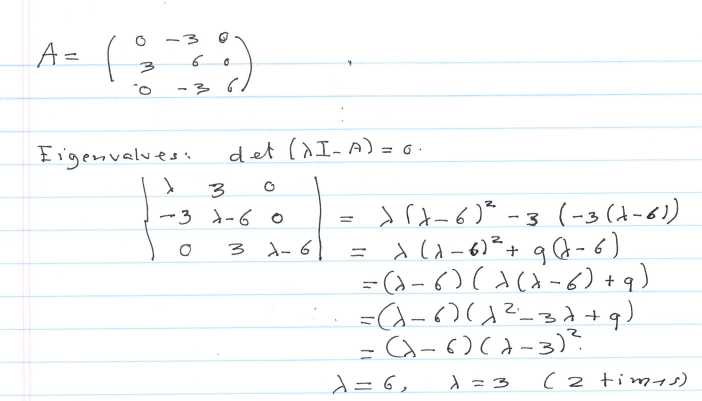 A = ( 0 -3 0
3 6 0
0 -3 6 )
Eigenvalues: det (λI - A) = 0.
| λ 3 0 |
| -3 λ-6 0 | = λ(λ-6)² - 3 (-3(λ-6))
| 0 3 λ-6 | = λ(λ-6)² + 9(λ-6)
= (λ-6)(λ(λ-6)+9)
= (λ-6)(λ²-3λ+9)
= (λ-6)(λ-3)².
λ = 6, λ = 3 (2 times)